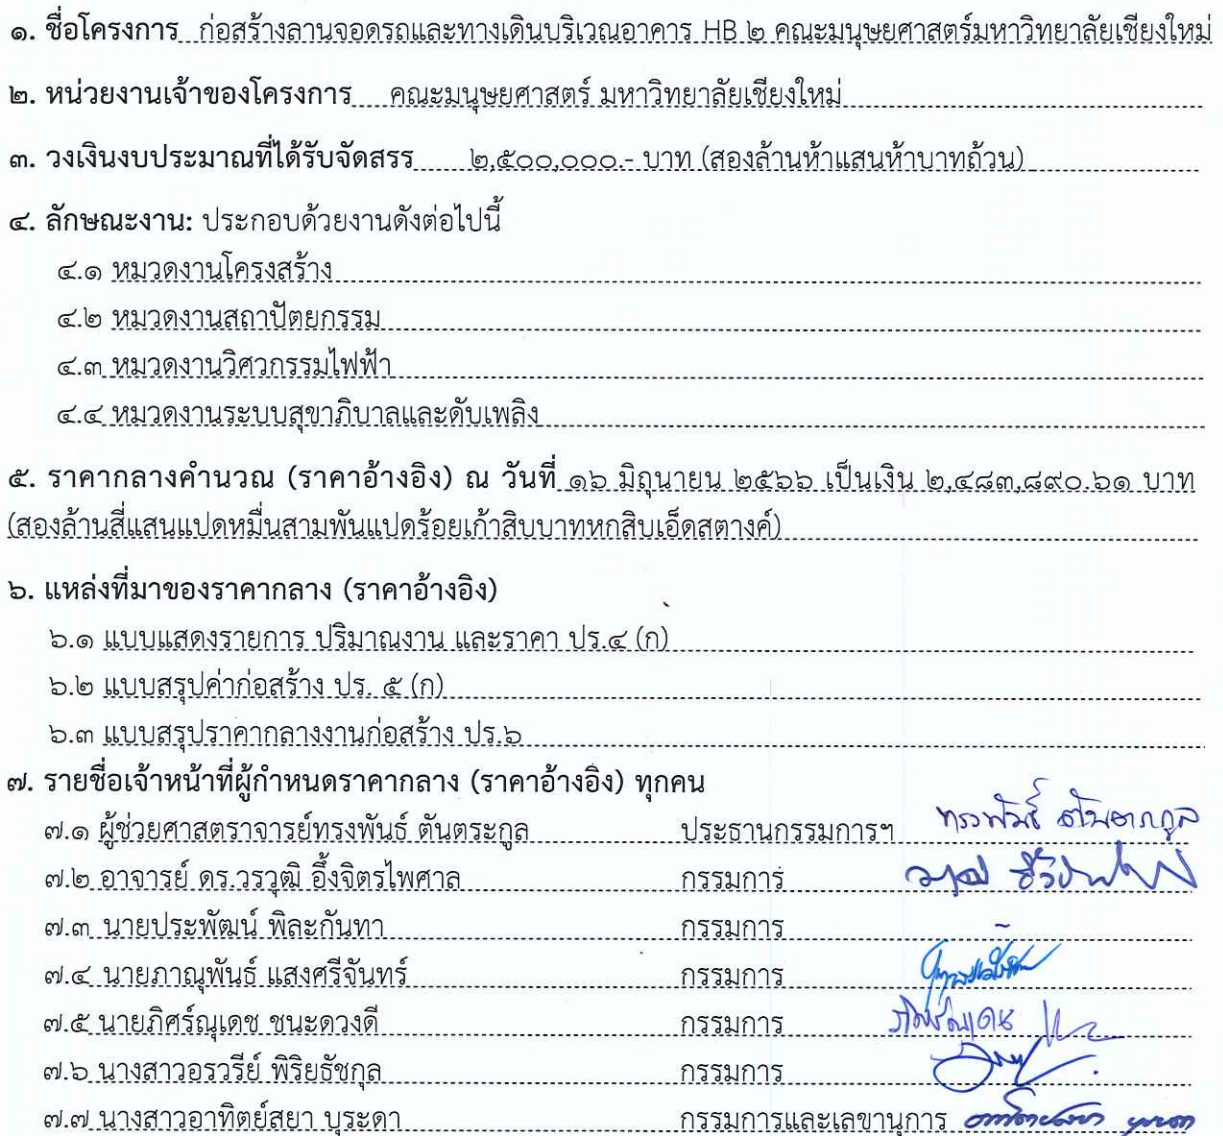 ๑. ชื่อโครงการ ก่อสร้างลานจอดรถและทางเดินบริเวณอาคาร HB ๒ คณะมนุษยศาสตร์มหาวิทยาลัยเชียงใหม่
๒. หน่วยงานเจ้าของโครงการ คณะมนุษยศาสตร์ มหาวิทยาลัยเชียงใหม่
๓. วงเงินงบประมาณที่ได้รับจัดสรร ๒,๕๐๐,๐๐๐.- บาท (สองล้านห้าแสนห้าบาทถ้วน)
๔. ลักษณะงาน: ประกอบด้วยงานดังต่อไปนี้
๔.๑ หมวดงานโครงสร้าง
๔.๒ หมวดงานสถาปัตยกรรม
๔.๓ หมวดงานวิศวกรรมไฟฟ้า
๔.๔ หมวดงานระบบสุขาภิบาลและดับเพลิง
๕. ราคากลางคำนวณ (ราคาอ้างอิง) ณ วันที่ ๑๖ มิถุนายน ๒๕๖๖ เป็นเงิน ๒,๔๘๓,๘๙๐.๖๑ บาท
(สองล้านสี่แสนแปดหมื่นสามพันแปดร้อยเก้าสิบบาทหกสิบเอ็ดสตางค์)
๖. แหล่งที่มาของราคากลาง (ราคาอ้างอิง)
๖.๑ แบบแสดงรายการ ปริมาณงาน และราคา ปร.๔ (ก)
๖.๒ แบบสรุปค่าก่อสร้าง ปร. ๕ (ก)
๖.๓ แบบสรุปราคากลางงานก่อสร้าง ปร.๖
๗. รายชื่อเจ้าหน้าที่ผู้กำหนดราคากลาง (ราคาอ้างอิง) ทุกคน
๗.๑ ผู้ช่วยศาสตราจารย์ทรงพันธ์ ตันตระกูล ประธานกรรมการฯ ทรงพันธ์ ตันตระกูล
๗.๒ อาจารย์ ดร.วรวุฒิ อึ้งจิตรไพศาล กรรมการ
๗.๓ นายประพัฒน์ พิละกันทา กรรมการ
๗.๔ นายภาณุพันธ์ แสงศรีจันทร์ กรรมการ
๗.๕ นายภิศร์ณุเดช ชนะดวงดี กรรมการ
๗.๖ นางสาวอรวรีย์ พิริยธัชกุล กรรมการ
๗.๗ นางสาวอาทิตย์สยา บุระดา กรรมการและเลขานุการ